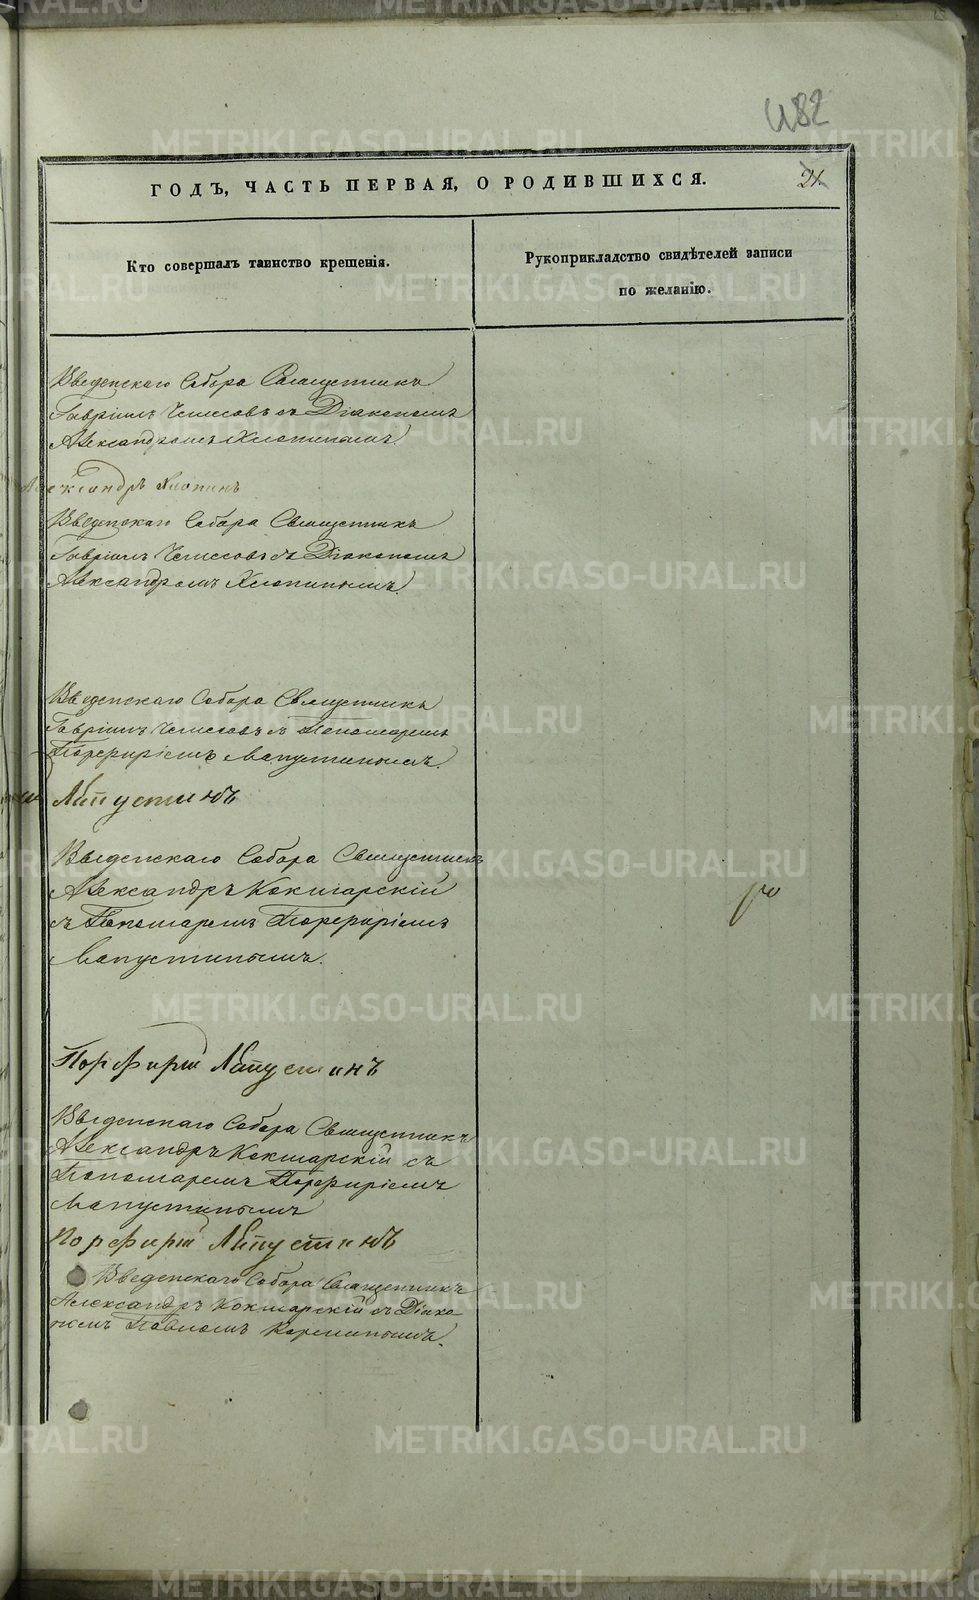 482
ГОДЪ, ЧАСТЬ ПЕРВАЯ, О РОДИВШИХСЯ.
21.
Кто совершалъ таинство крещенія.
Рукоприкладство свидѣтелей записи
по желанію.
Введенскаго Собора Священникъ
Гавріилъ съ Діакономъ
Александромъ Хлопинымъ.
Александръ Хлопинъ
Введенскаго Собора Священникъ
Гавріилъ съ Діакономъ
Александромъ Хлопинымъ.
Введенскаго Собора Священникъ
Гавріилъ съ Пономаремъ
Порфиріемъ Лапустинымъ.
Лапустинъ
Введенскаго Собора Священникъ
Александръ Кокшарскій
съ Пономаремъ Порфиріемъ
Лапустинымъ.
Порфирій Лапустинъ
Введенскаго Собора Священникъ
Александръ Кокшарскій съ
Пономаремъ Порфиріемъ
Лапустинымъ
Порфирій Лапустинъ
Введенскаго Собора Священникъ
Александръ Кокшарскій съ Діако-
номъ Павломъ
METRIKI.GASO-URAL.RU